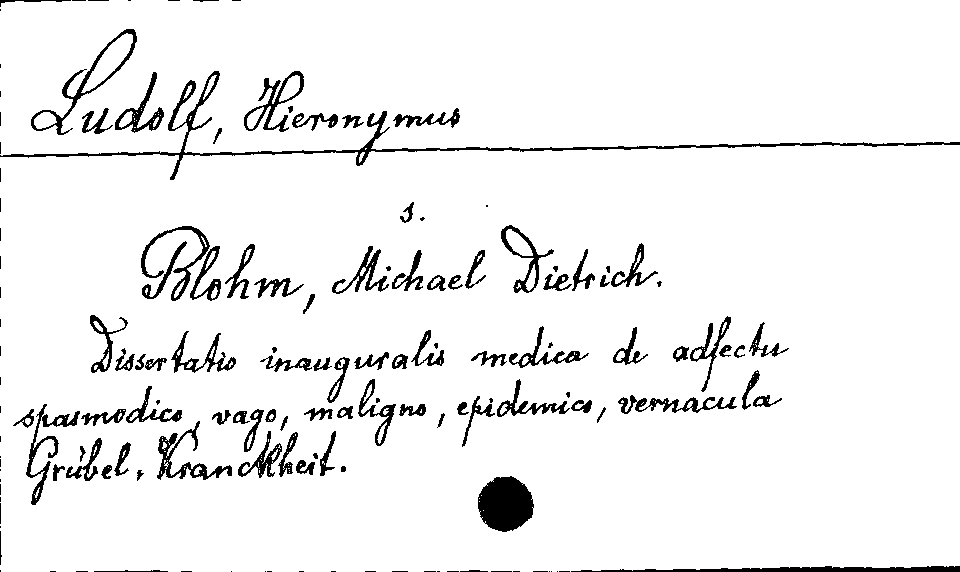 Ludolf, Hieronymus
s.
Blohm, Michael Dietrich.
Dissertatio inauguralis medica de adfectu
spasmodico, vago, maligno, epidemico, vernacula
Grübel. Kranckheit.